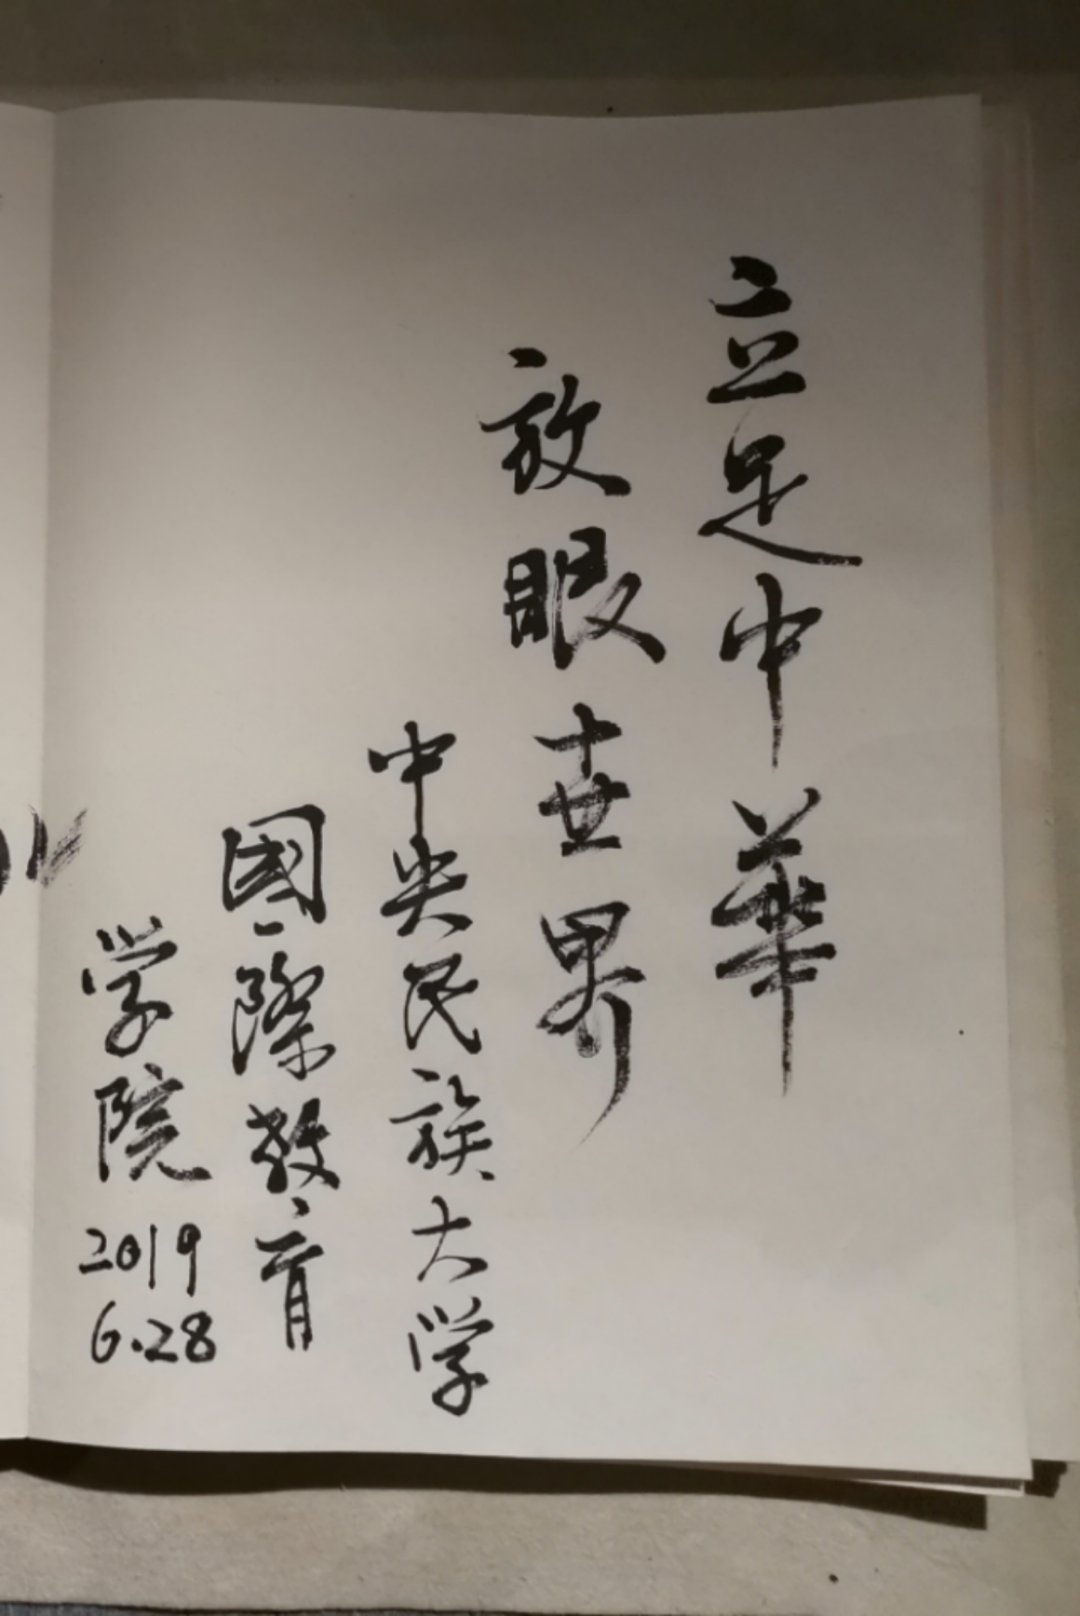 立足中華
放眼世界
中央民族大学
國際教育
学院
2019
6.28